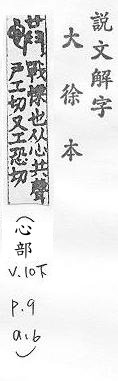 說文解字
大徐本
㤨戰慄也从心共聲
戶工切又工恐切
(心部
V.10下
p.9
a:6)